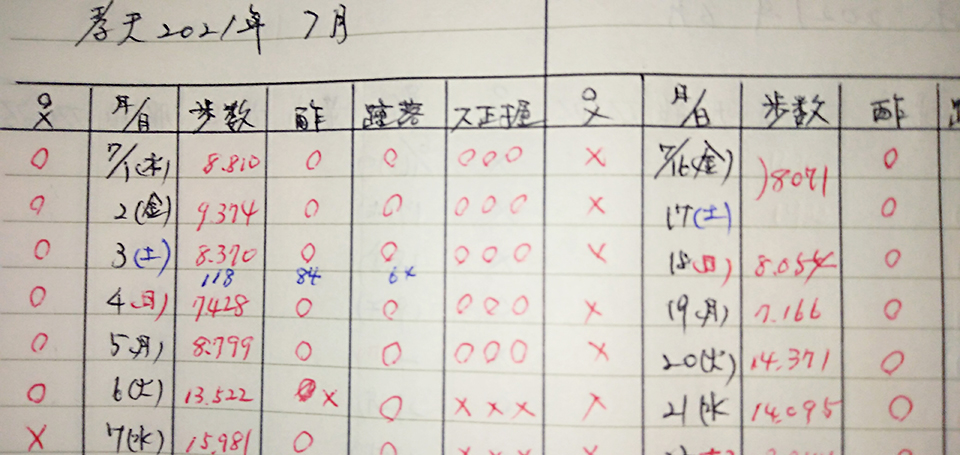 孝天 2021年 7月
○/× 月/日 歩数 酢 踵落 ス正握 ○/× 月/日 歩数 酢
○ 7/1(木) 8.810 ○ ○ ○○○ × 7/16(金) )8071 ○
○ 2(金) 9.374 ○ ○ ○○○ × 17(土) ○
○ 3(土) 8.370 ○ ○ ○○○ × 18(日) 8.054 ○
118 84 64
○ 4(日) 7428 ○ ○ ○○○ × 19(月) 7.166 ○
○ 5(月) 8.799 ○ ○ ○○○ × 20(火) 14.371 ○
○ 6(火) 13.522 × ○ ××× × 21(水 14.095 ○
× 7(水) 15.981 ○